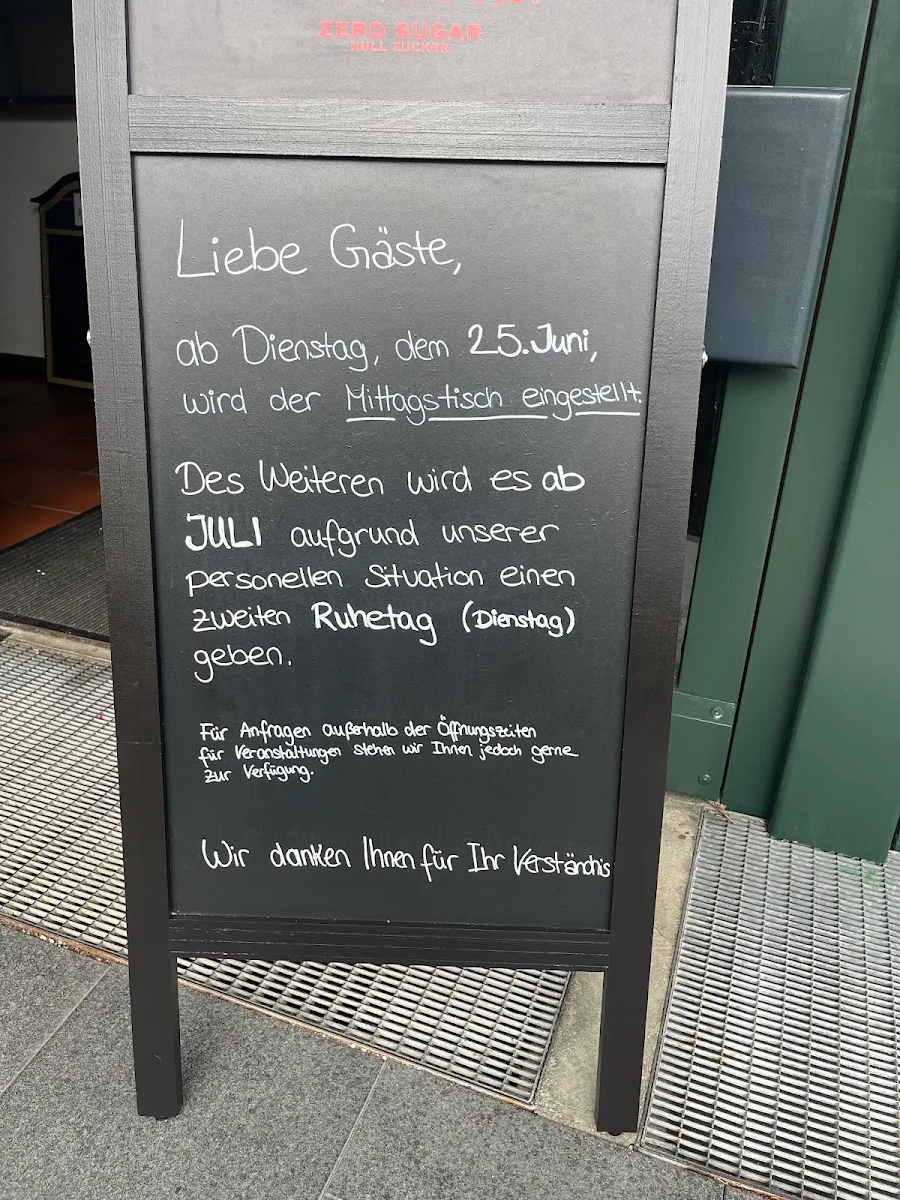 ZERO SUGAR
NULL ZUCKER
Liebe Gäste,
ab Dienstag, dem 25. Juni,
wird der Mittagstisch eingestellt.
Des Weiteren wird es ab
JULI aufgrund unserer
personellen Situation einen
zweiten Ruhetag (Dienstag)
geben.
Für Anfragen außerhalb der Öffnungszeiten
für Veranstaltungen stehen wir Ihnen jedoch gerne
zur Verfügung.
Wir danken Ihnen für Ihr Verständnis